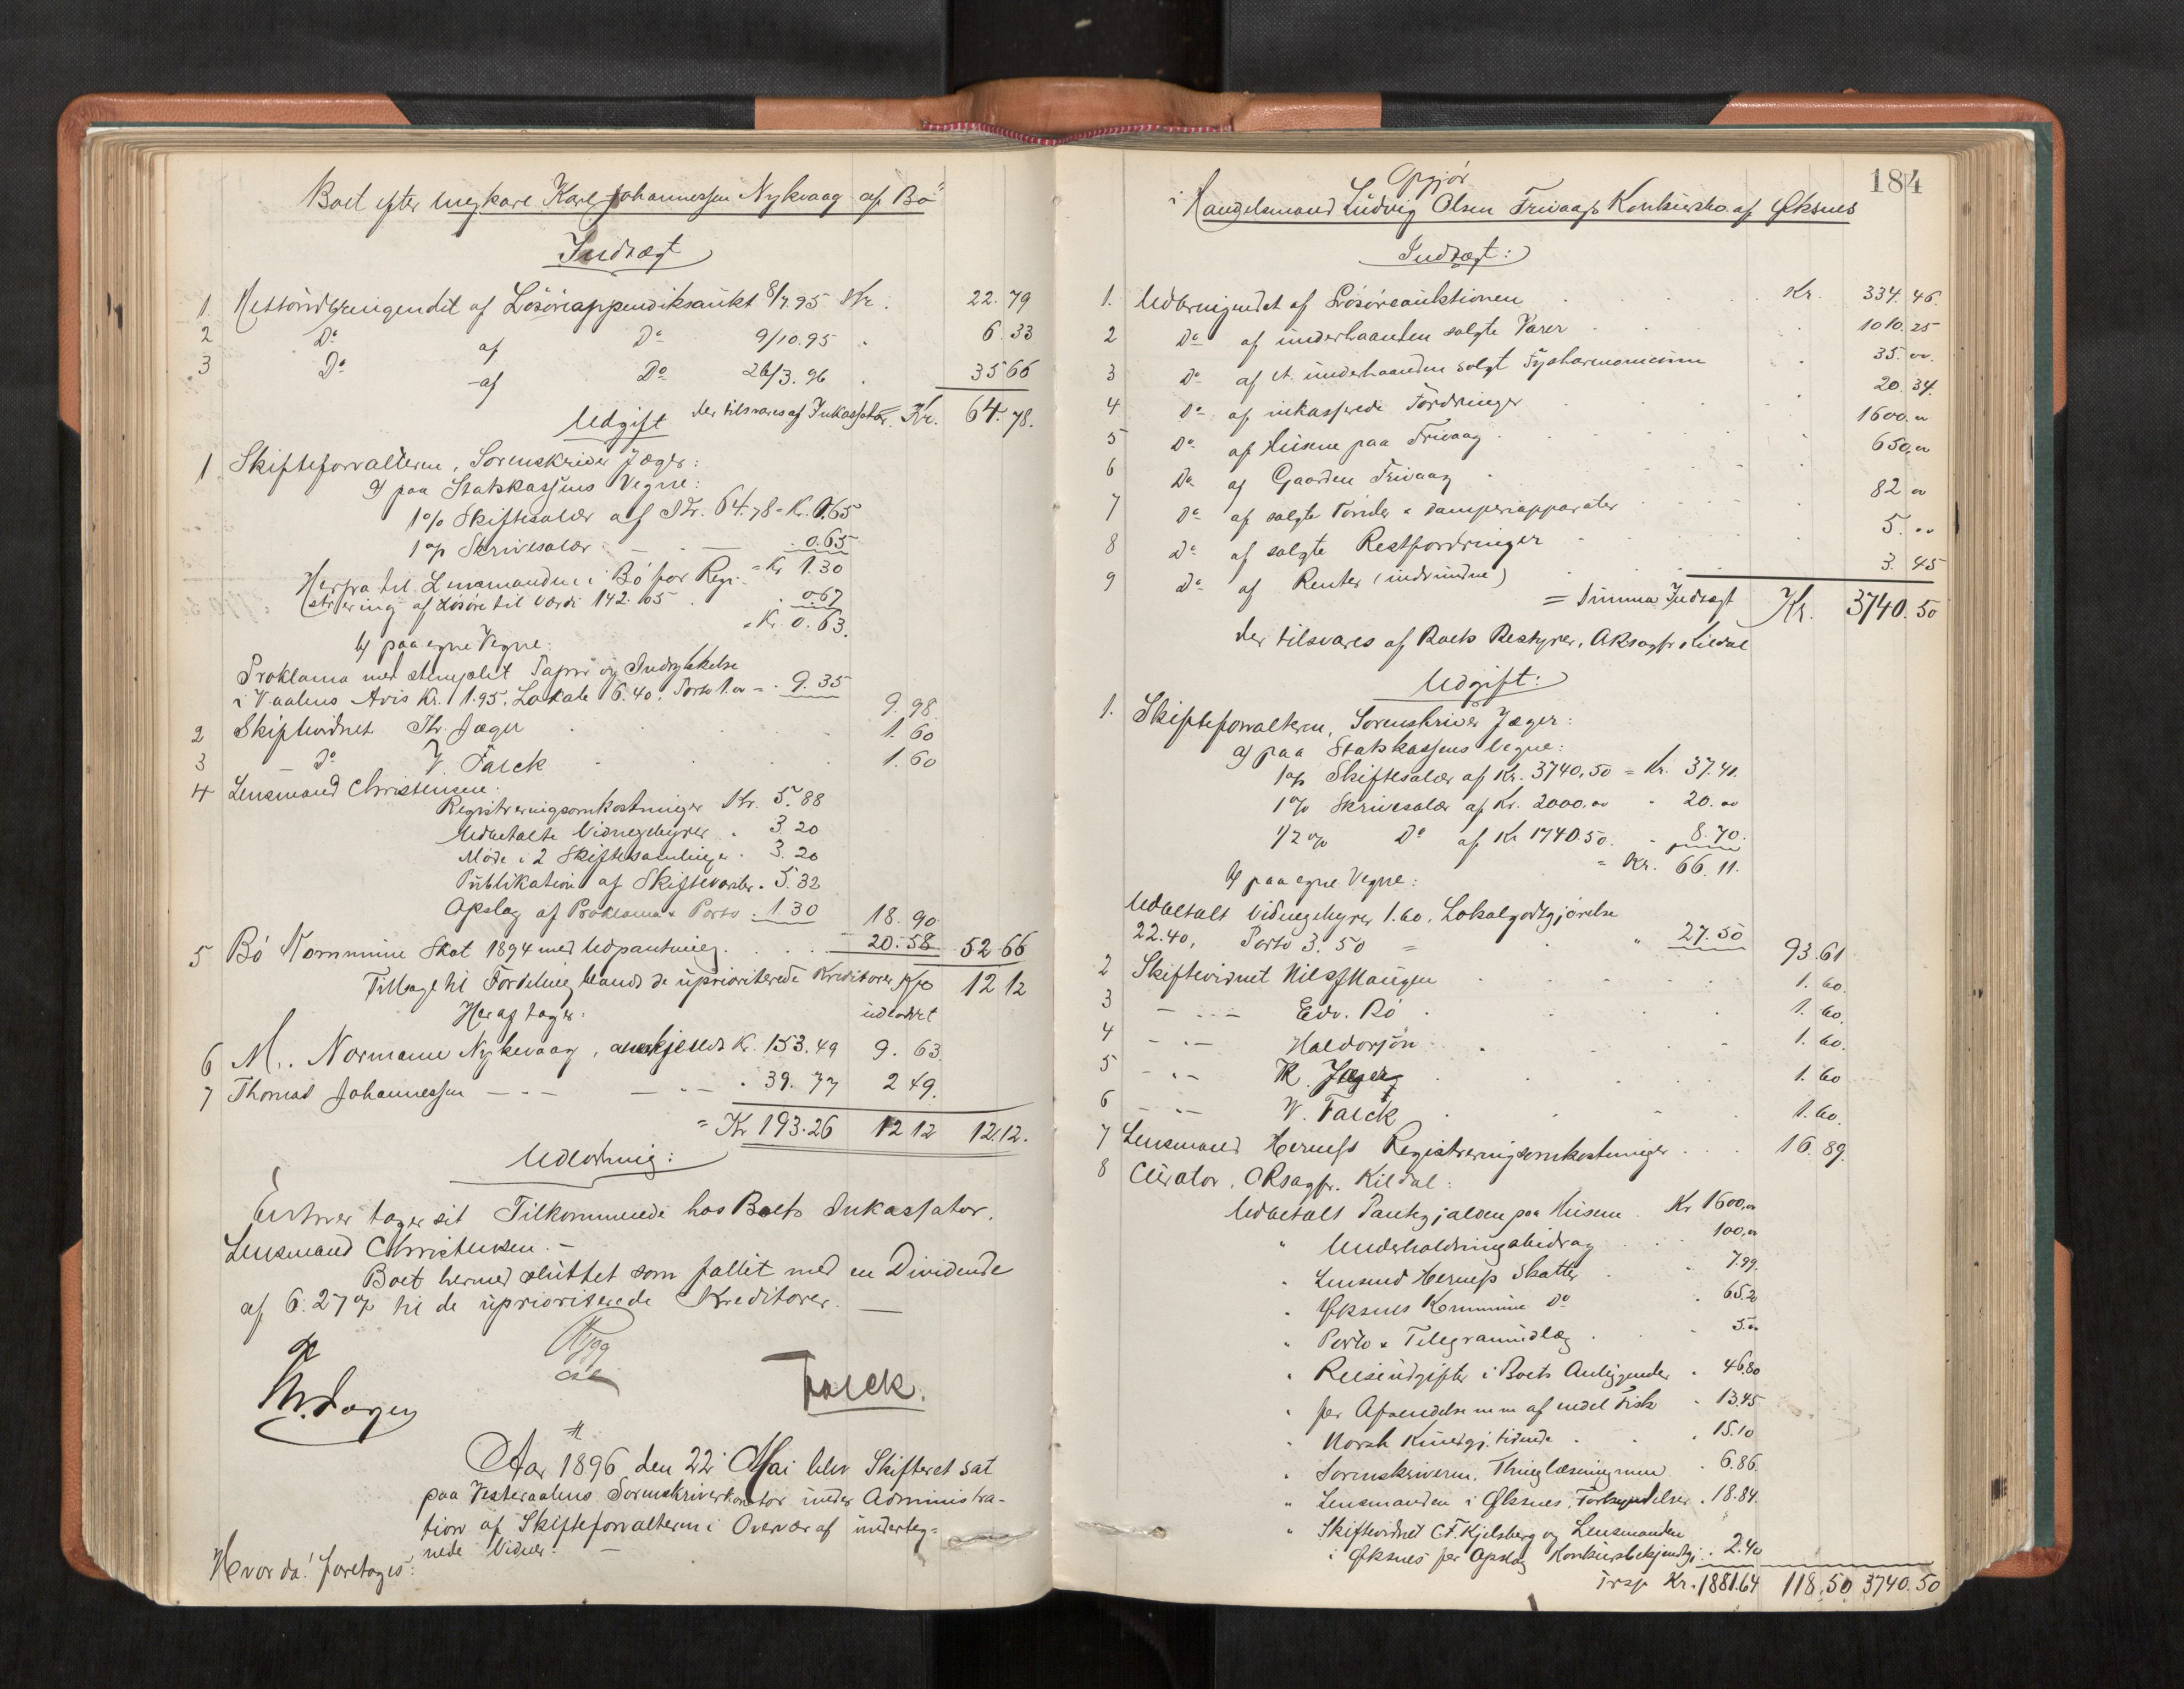 Boet efter ungkarl Karl Johannessen Nykvaag af Bö
Indtægt
1. Nettoudbringendet af Lösöreappendiksaukt 8/7.95 Kr. 22.79
2 Do af Do 9/10.95 . 6.33
3 Do af Do 26/3.96 . 35 66
der tilsvares af Inkassator Kr. 64.78.
Udgift
1 Skifteforvalteren, Sorenskriver Jæger:
a) paa Statskassens Vegne:
1% Skiftesalær af Kr. 64.78 = Kr. 0.65
1% Skrivesalær . 0.65
= Kr 1.30
Herfra til Lensmanden i Bö for Regi-
strering af Lösöre til Værdi 142.05 . 0.67
= Kr. 0.63.
b) paa egne Vegne:
Proklama med stemplet Papir og Indrykkelse
i V.aalens Avis Kr. 1.95, Lokale 6.40, Porto 1.00 = . 9.35 9.98
2 Skiftevidnet Th. Jæger 1.60
3 – Do V. Falck 1.60
4 Lensmand Christensen:
Registreringsomkostninger Kr. 5.88
Udbetalte Vidnegebyrer . 3.20
Möde i 2 Skiftesamlinger . 3.20
Publikation af Skiftevarsler . 5.32
Opslag af Proklama & Porto . 1.30 18.90
5 Bö Kommune Skat 1894 med Udpantning . 20.58 52 66
Tilbage til Fordeling blandt de uprioriterede Kreditorer Kr 12 12
Heraf tager: udloddet
6 M. Normann Nykvaag, anerkjendt Kr. 153.49 9.63
7 Thomas Johannessen — " — — " — . 39.77 2 49.
= Kr 193.26 12 12 12.12.
Udlodning:
Enhver tager sit Tilkommende hos Boets Inkassator,
Lensmand Christensen. –
Boet hermed sluttet som fallit med en Dividende
af 6.27% til de uprioriterede Kreditorer. —
Th. Jæger
Falck.
Aar 1896 den 22 Mai blev Skifteret sat
paa Vesteraalens Sorenskriverkontor under Administra-
tion af Skifteforvalteren i Overvær af underteg-
nede Vidner: –
Hvorda! foretoges:
184
Opgjör
i Handelsmand Ludvig Olsen Frivaags Konkursbo af Øksnes
Indtægt:
1. Udbringendet af Lösöreauktionen Kr. 334.46.
2 Do af underhaanden solgte Varer 1010.25
3 Do af et underhaanden solgt Fysharmonium 35.00.
4 Do af inkasserede Fordringer 20.34.
5 Do af Husene paa Frivaag 1600.00
6 Do af Gaarden Frivaag 650,00
7 Do af solgte Tönder & Damperiapparater 82 00
8 Do af solgte Restfordringer 5.00
9 Do af Renter (indvundne) 3.45
= Summa Indtægt Kr. 3740.50
der tilsvares af Boets Bestyrer, ORsagfr Kildal
Udgift:
1. Skifteforvalteren, Sorenskriver Jæger:
a) paa Statskassens Vegne:
1% Skiftesalær af Kr. 3740,50 = Kr. 37.41.
1% Skrivesalær af Kr. 2000.00 " 20.00
1/2% Do af Kr 1740.50. " 8.70.
= Kr. 66.11.
b) paa egne Vegne:
Udbetalt Vidnegebyrer 1.60, Lokalgodtgjörelse
22.40, Porto 3.50 = " 27.50 93.61
2 Skiftevidnet Nils Haugen 1.60.
3 – " – Edv. Bö 1.60.
4 – " – Haldorsön 1.60.
5 – " – Th. Jæger 1.60
6 – " – V. Falck 1.60.
7 Lensmand Herness Registreringsomkostninger 16.89.
8 Curator, ORsagfr. Kildal:
Udbetalt Pantegjælden paa Husene Kr 1600,00
" Underholdningsbidrag 100,00
" Lensmd Herness Skatter " 7.99.
" Øksnes Kommune Do " 65.20
" Porto & Telegramudlæg " 5.00
" Reiseudgifter i Boets Anliggender " 46.80
" for Afsendelse m m af endel Fisk " 13.45
" Norsk Kundgj. tidende " 15.10
" Sorenskriveren, Thinglæsning m m " 6.86.
" Lensmanden i Øksnes, Forkyndelser " 18.84.
" Skiftevidnet C.F. Kjelsberg og Lensmanden
i Øksnes for Opslag Konkursbekjendtgj. . 2.40
Trsp Kr. 1881.64 118,50 3740.50